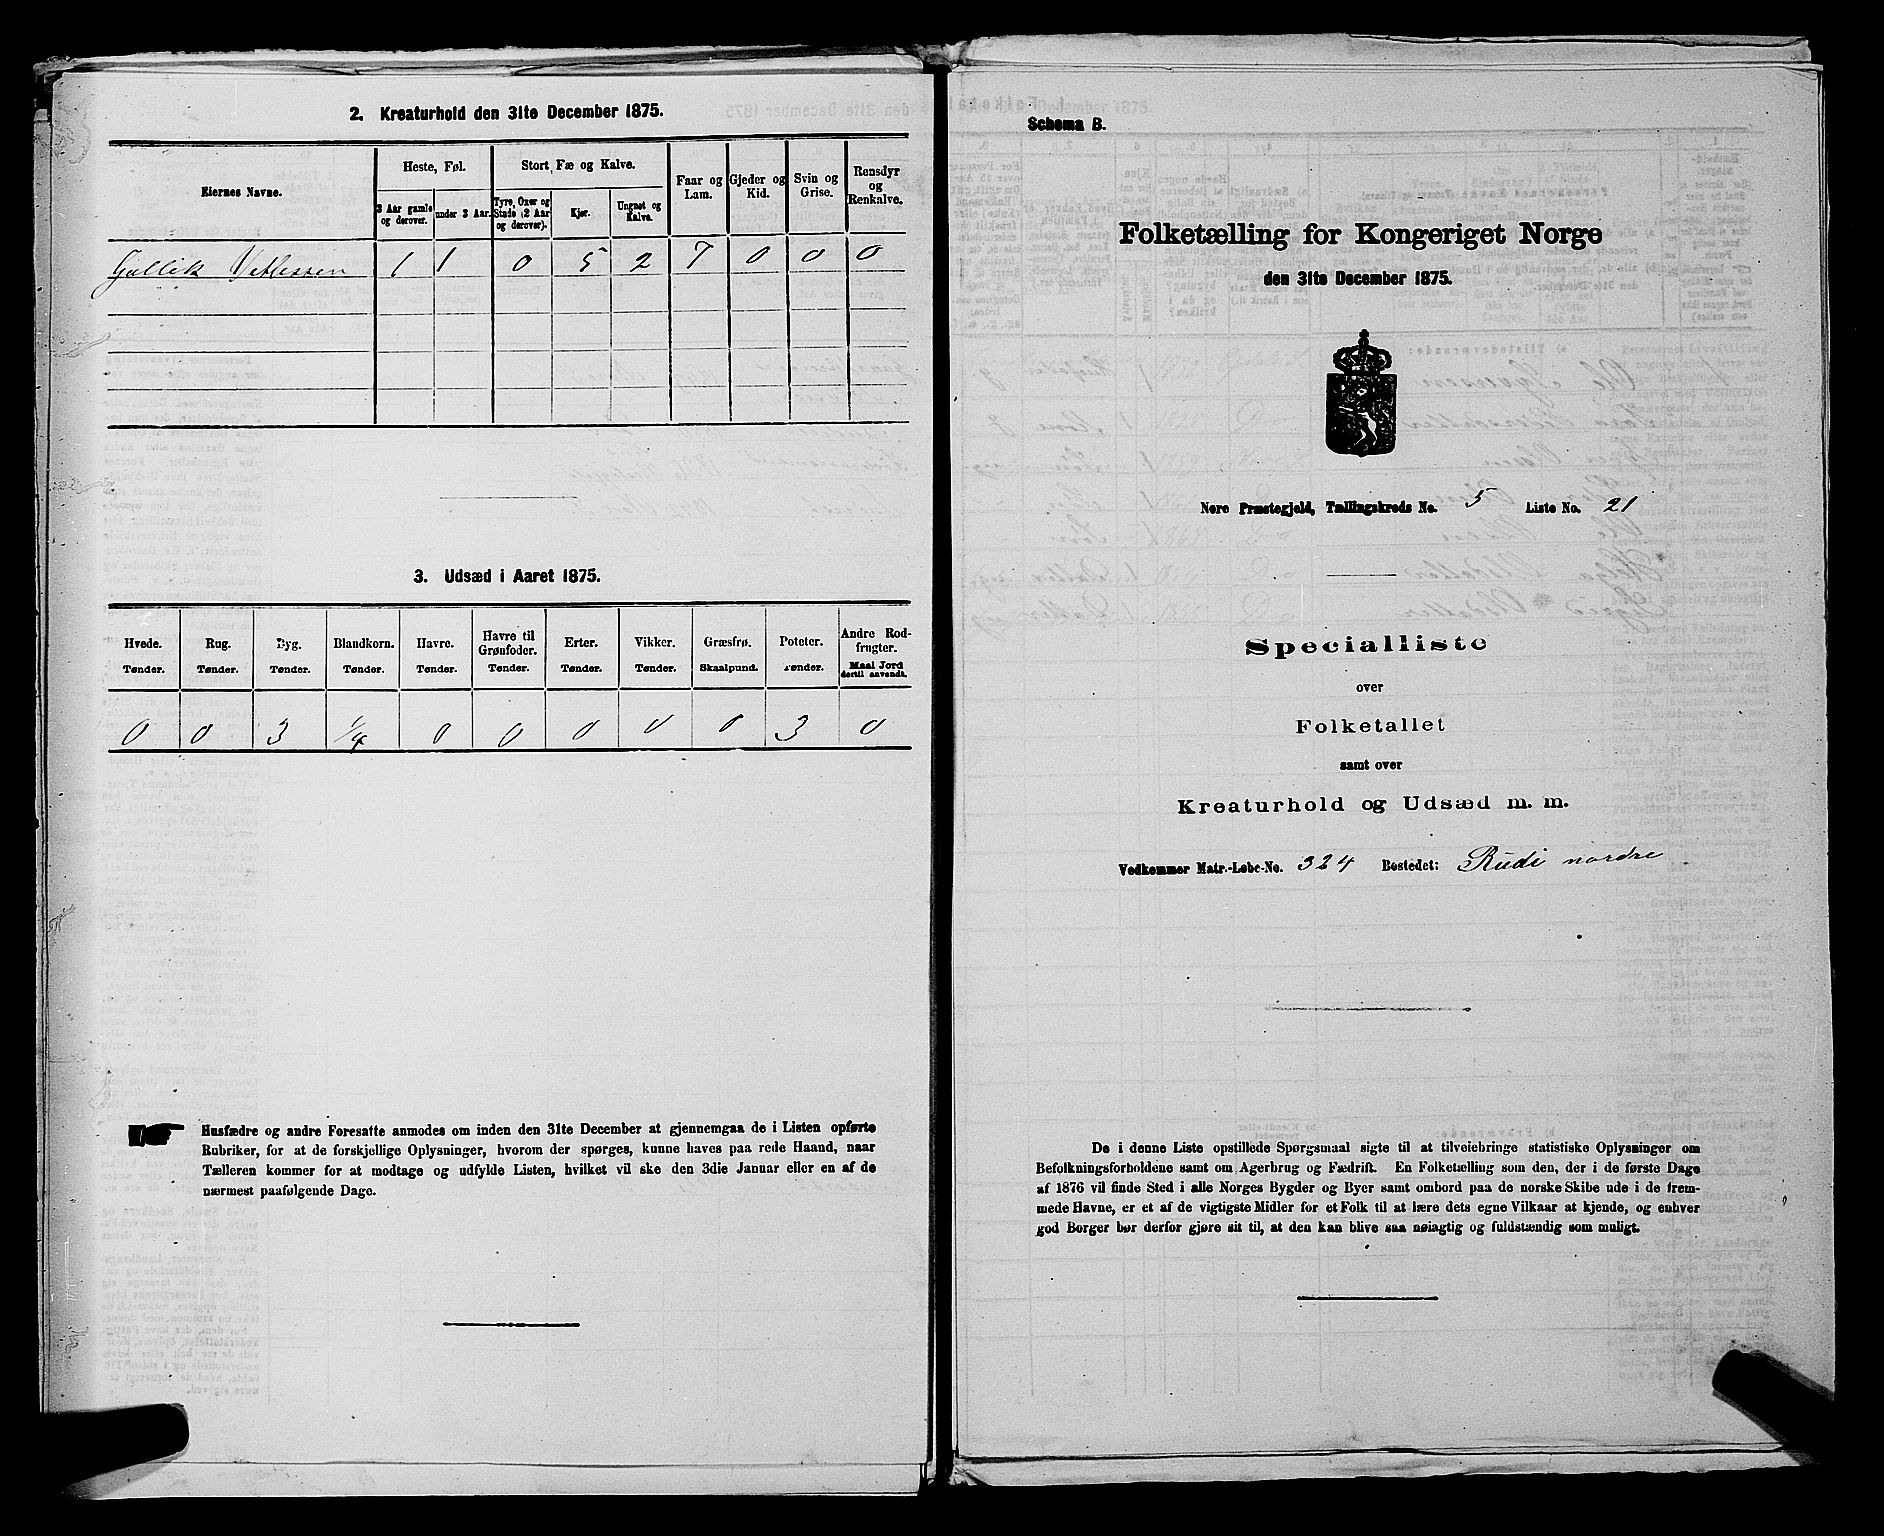 2. Kreaturhold den 31te December 1875.
Eiernes Navne.
Heste, Føl.
Stort, Fæ og Kalve.
Faar og Lam.
Gjeder og Kid.
Svin og Grise.
Rensdyr og Renkalve.
3 Aar gamle og derover.
under 3 Aar.
Tyre, Oxer og Stude (2 Aar og derover).
Kjør.
Ungnøt og Kalve.
Gullik Vetlessen 1 1 0 5 2 7 0 0 0
3. Udsæd i Aaret 1875.
Hvede. Rug. Byg. Blandkorn. Havre. Havre til Grønfoder. Erter. Vikker. Græsfrø. Poteter. Andre Rodfrugter.
Tønder. Tønder. Tønder. Tønder. Tønder. Tønder. Tønder. Tønder. Skaalpund. Tønder. Maal Jord dertil anvendt.
0 0 3 1/4 0 0 0 0 0 3 0
Husfædre og andre Foresatte anmodes om inden den 31te December at gjennemgaa de i Listen opførte
Rubriker, for at de forskjellige Oplysninger, hvorom der spørges, kunne haves paa rede Haand, naar
Tælleren kommer for at modtage og udfylde Listen, hvilket vil ske den 3die Januar eller en af de
nærmest paafølgende Dage.
Schema B.
Folketælling for Kongeriget Norge
den 31te December 1875.
Nore Præstegjeld, Tællingskreds No. 5 Liste No. 21
Specialliste
over
Folketallet
samt over
Kreaturhold og Udsæd m. m.
Vedkommer Matr.-Løbe-No. 324 Bostedet: Rudi nordre
De i denne Liste opstillede Spørgsmaal sigte til at tilveiebringe statistiske Oplysninger om
Befolkningsforholdene samt om Agerbrug og Fædrift. En Folketælling som den, der i de første Dage
af 1876 vil finde Sted i alle Norges Bygder og Byer samt ombord paa de norske Skibe ude i de frem-
mede Havne, er et af de vigtigste Midler for et Folk til at lære dets egne Vilkaar at kjende, og enhver
god Borger bør derfor gjøre sit til, at den kan blive saa nøiagtig og fuldstændig som muligt.